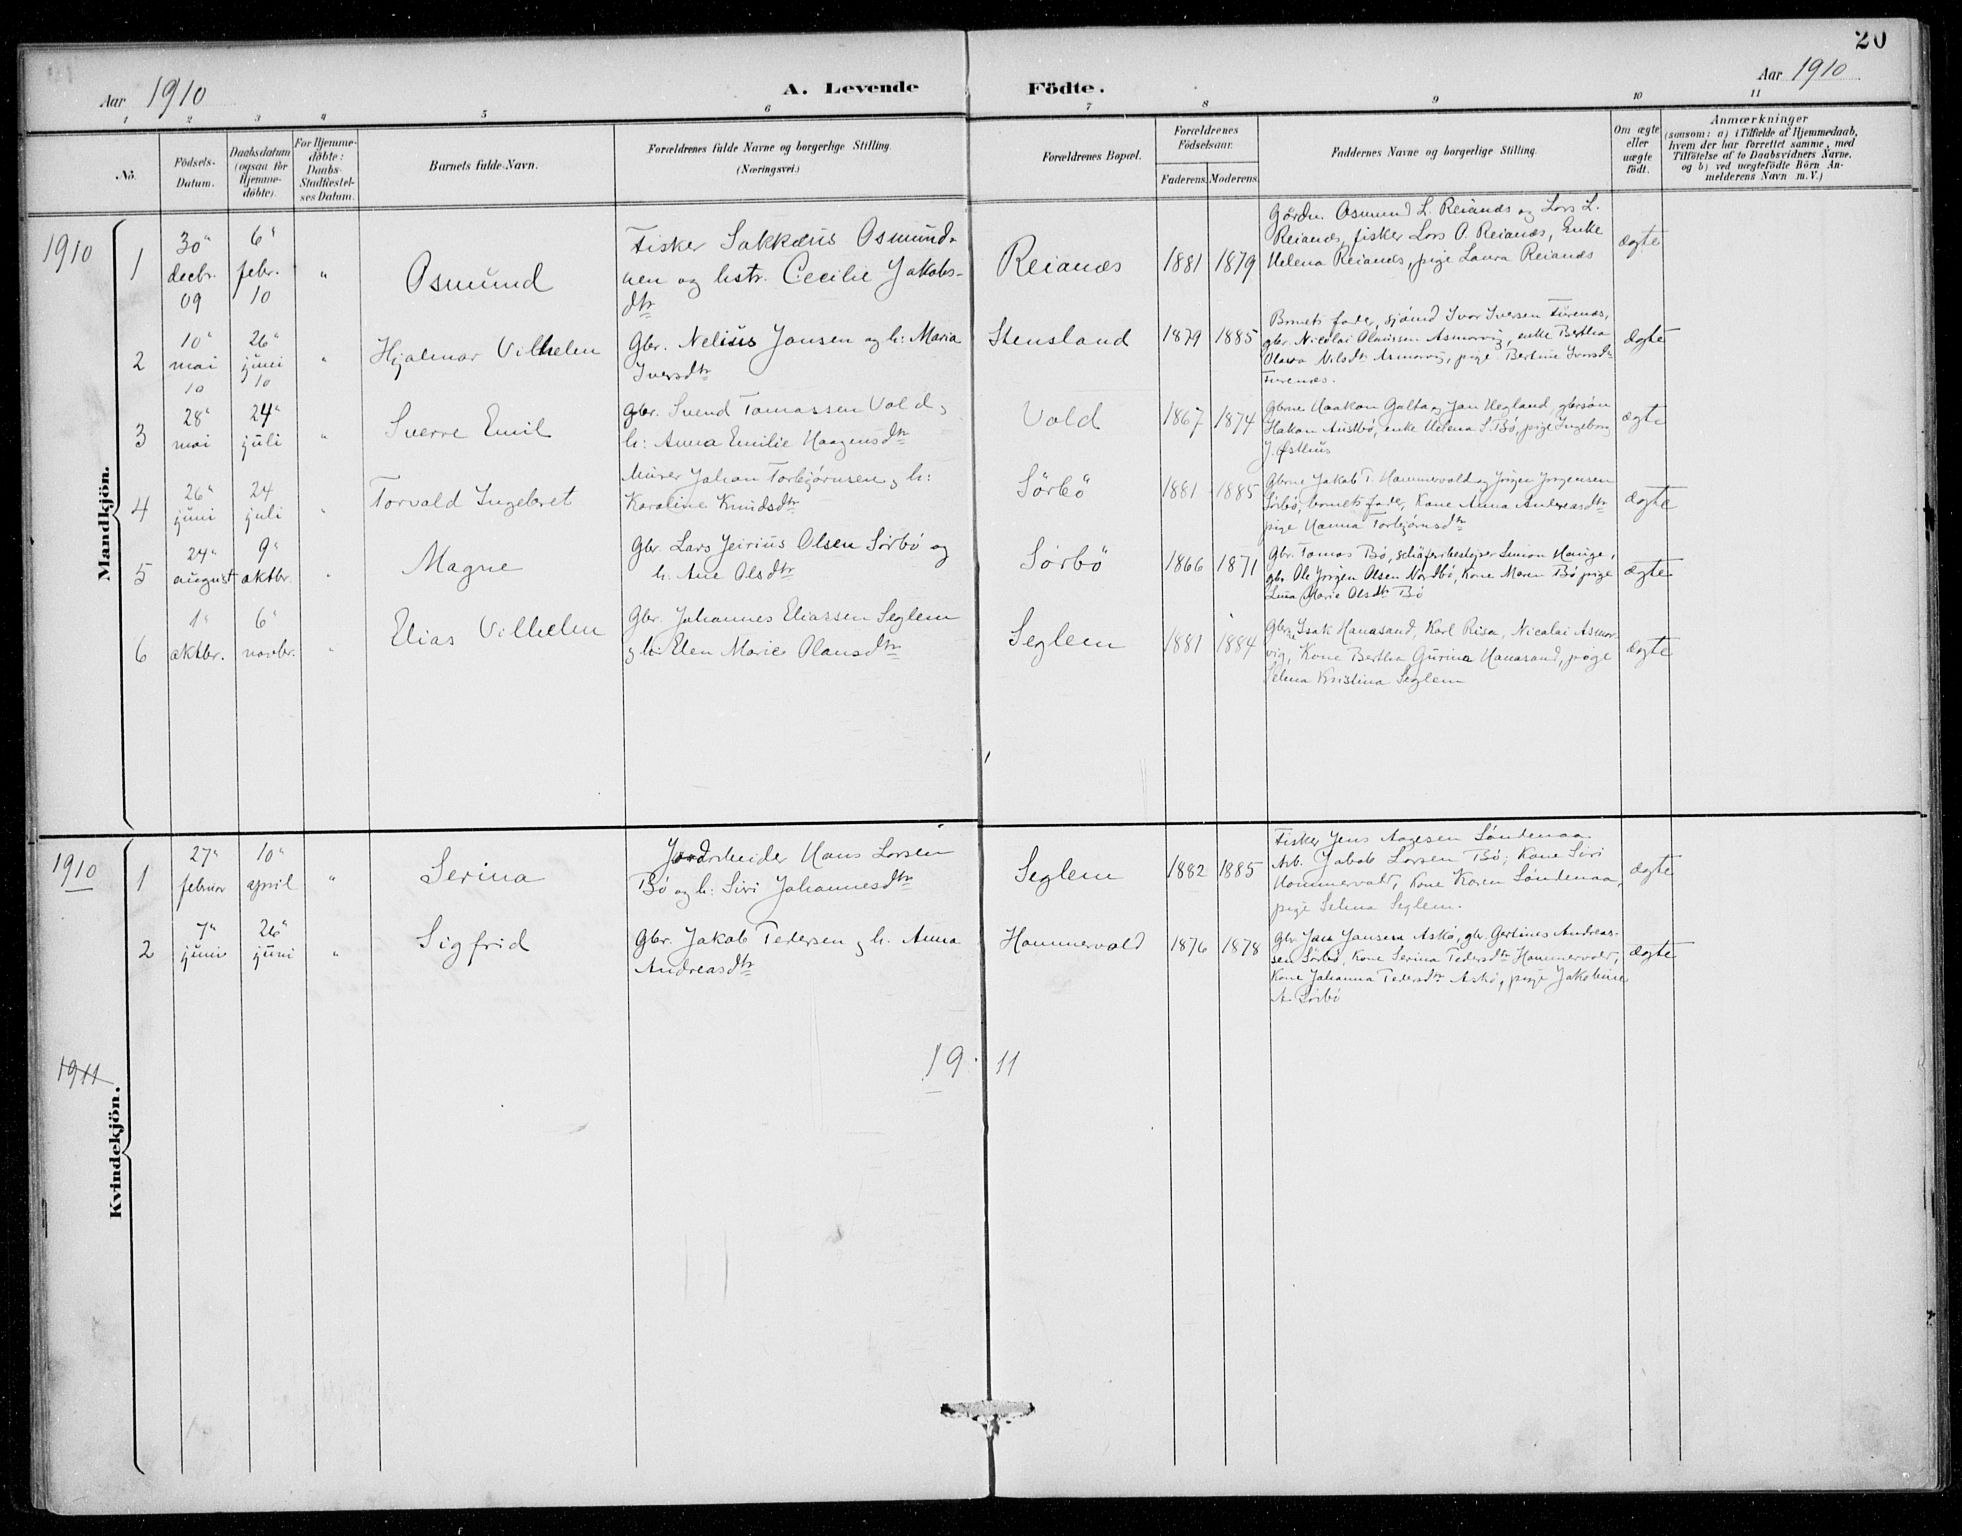 20
Aar 1910
A. Levende Födte.
Aar 1910
1 2 3 4 5 6 7 8 9 10 11
No.
Födsels-Datum.
Daabsdatum (ogsaa for Hjemmedøbte).
For Hjemmedøbte: Daabs-Stadfæstelses Datum.
Barnets fulde Navn.
Forældrenes fulde Navne og borgerlige Stilling. (Næringsvei.)
Forældrenes Bopæl.
Forældrenes Födselsaar.
Faderens. Moderens.
Faddernes Navne og borgerlige Stilling.
Om ægte eller uægte födt.
Anmærkninger
(saasom: a) i Tilfælde af Hjemmedaab, hvem der har forrettet samme, med Tilföielse af to Daabsvidners Navne, og b) ved uægtefödte Börn Anmelderens Navn m. V.)
Mandkjön.
1910
1
30" decbr. 09
6" febr. 10
"
Osmund
Fisker Sakkæus Osmund-
sen og hstr. Cecilie Jakobs-
dtr
Reianæs
1881 1879
Gårdbr. Osmund L. Reianæs og Lars L.
Reianæs, fisker Lars O. Reianæs, Enke
Helena Reianæs, pige Laura Reianæs
ægte
2
10" mai 10
26" juni 10
"
Hjalmar Vilhelm
Gbr. Nelius Jansen og h: Maria
Iversdtr
Stensland
1879 1885
Barnets fader, sjömd Ivar Iversen Furenæs,
gbr. Nicolai Olaussen Asmarvig, enke Bertha
Olava Nilsdtr Asmarvig, pige Bertine Ivarsdtr
Furenæs.
ægte
3
28" mai
24" juli
"
Sverre Emil
Gbr. Svend Tomassen Vold og
h: Anna Emilie Haagensdtr
Vold
1867 1874
Gbrne Haakon Galta og Jan Hegland, gbrsön
Hakon Austbø, enke Helena S. Bø, pige Ingeborg
J. Østhus
ægte
4
26" juni
24 juli
"
Torvald Ingebret
Murer Johan Torbjørnsen og h:
Karoline Knudsdtr
Sörbö
1881 1885
Gbrne Jakob T. Hammervold og Jörgen Jörgensen
Sörbö, barnets fader, Kone Anna Andersdtr
pige Hanna Torbjørnsdtr
ægte
5
24" august
9" oktbr.
"
Magne
Gbr. Lars Olsen Sørbø og
h. Ane Olsdtr
Sørbö
1866 1871
Gbr. Tomas Bø, Simon Hauge,
gbr. Ole Jörgen Olsen Nordbö, Kone Maren Bø pige
Lina Marie Olsdtr Bö
ægte
6
1" oktbr.
6" novbr.
"
Elias Vilhelm
Gbr. Johannes Eliassen Seglem
og h: Elen Marie Olausdtr
Seglem
1881 1884
Gbrne Isak Hanasand, Karl Risa, Nicolai Asmar-
vig, Kone Bertha Gurina Hanasand, pige
Selma Kristina Seglem
ægte
Kvindekjön.
1910
1
27" februar
10" april
"
Serina
Jordarbeider Hans Larsen
Bø og h: Siri Johannesdtr
Seglem
1882 1885
Fisker Jens Aagesen Søndenaa
Arb. Jakob Larsen Bø; Kone Siri
Hammervold, Kone Karen Søndenaa,
pige Selma Seglem.
ægte
2
7" juni
26" juni
"
Sigfrid
Gbr. Jakob Pedersen og h. Anna
Andreasdtr
Hammervold
1876 1878
Gbr. Jan Jansen Askø, gbr. Gertines Andreas-
sen Sörbö, Kone Serina Pedersdtr Hammervold,
Kone Johanna Pedersdtr Askø, pige Jakobine
A. Sørbø
ægte
1911
19 11